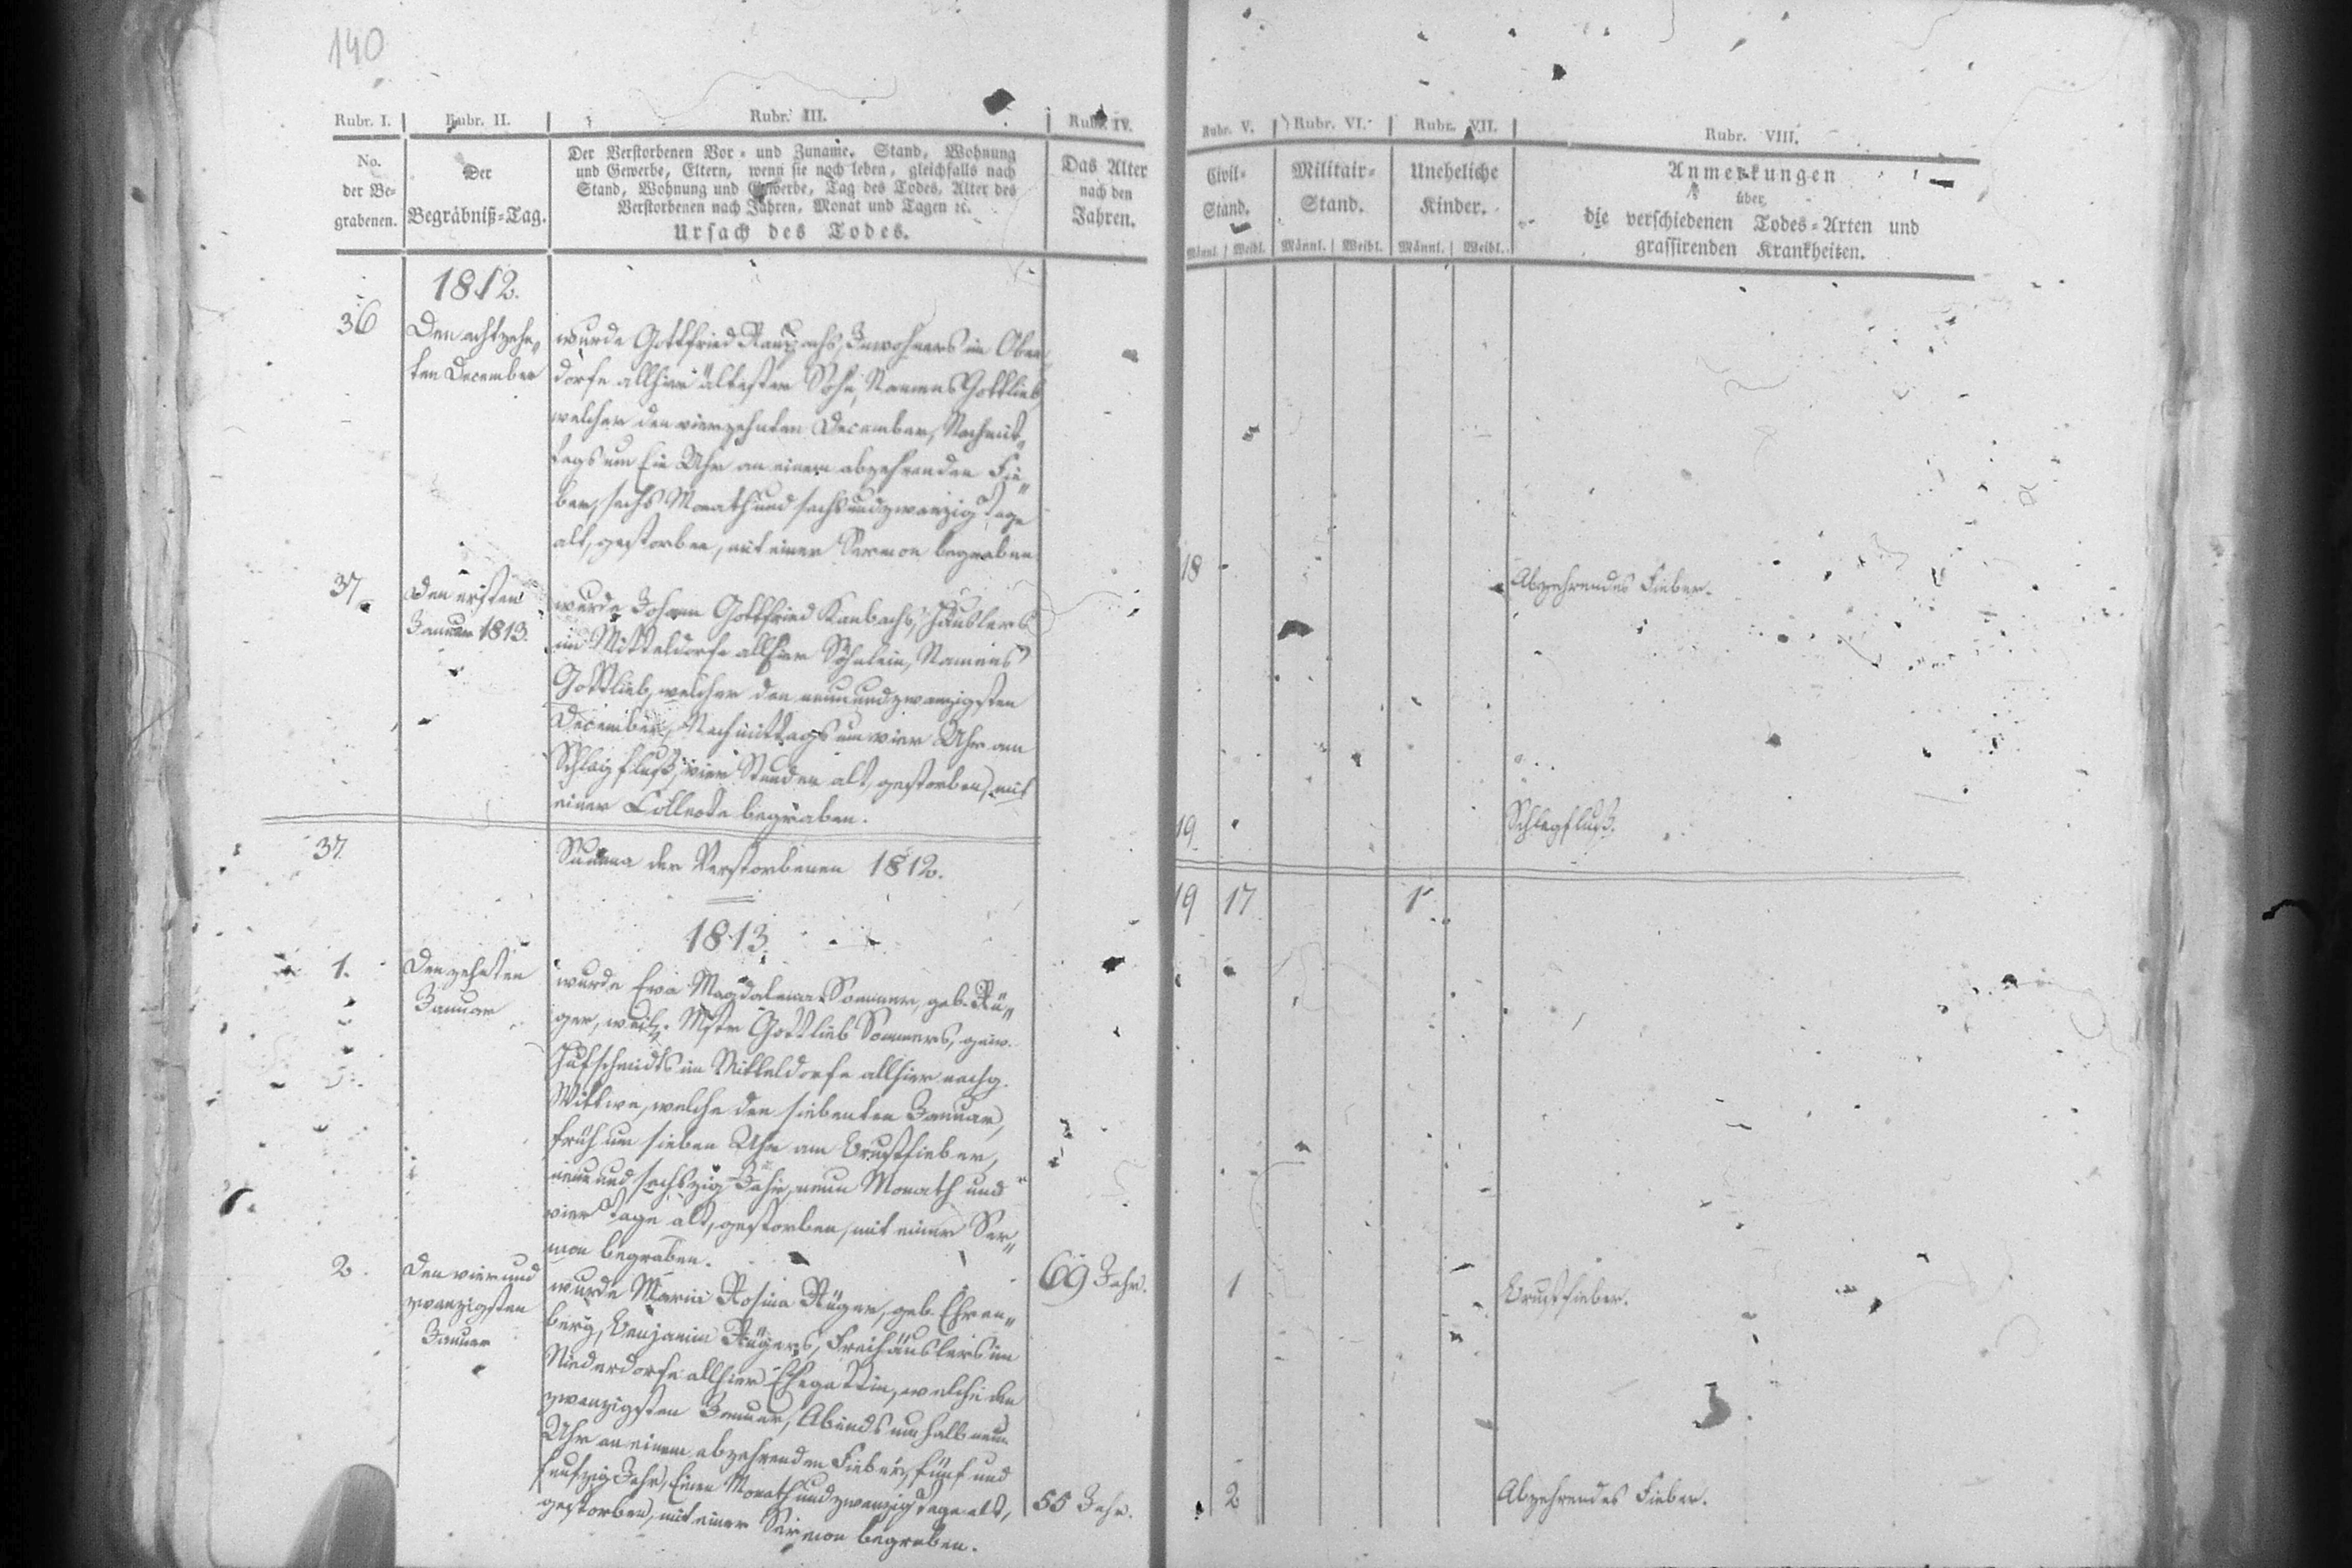 140
Rubr. I. Rubr. II. Rubr. III. Rubr. IV. Rubr. V. Rubr. VI. Rubr. VII. Rubr. VIII.
No.
der Be-
grabenen.
Der
Begräbniß-Tag.
Der Verstorbenen Vor- und Zuname. Stand, Wohnung
und Gewerbe, Eltern, wenn sie noch leben, gleichfalls nach
Stand, Wohnung und Gewerbe, Tag des Todes, Alter des
Verstorbenen nach Jahren, Monat und Tagen ꝛc.
Ursach des Todes.
Das Alter
nach den
Jahren.
Civil-
Stand.
Männl. Weibl.
Militair-
Stand.
Männl. Weibl.
Uneheliche
Kinder.
Männl. Weibl.
Anmerkungen
über
die verschiedenen Todes-Arten und
grassirenden Krankheiten.
1812.
36
Den achtzehn-
ten December
wurde Gottfried Inwohners im Ober
dorfe allhier ältester Sohn, Namens Gottlieb
welcher den vierzehnten December, Nachmit-
tags um Ein Uhr an einem abzehrenden Fie-
ber, sechs Monath und sechsundzwanzig Tage
alt, gestorben, mit einer Sermon begraben
18
Abzehrendes Fieber.
37
Den ersten
Januar 1813.
wurde Johann Gottfried Häuslers
im Mitteldorfe allhier Söhnlein, Namens
Gottlieb, welcher den neunundzwanzigsten
December, Nachmittags um vier Uhr am
Schlagfluß, vier Stunden alt, gestorben, mit
einer Collecte begraben.
19
Schlagfluß.
37.
Summa der Verstorbenen 1812.
19 17 1
1813.
1.
Den zehnten
Januar
wurde Eva Magdalena Sommer, geb. Rü-
ger, weil. Mstr Gottlieb Sommers, gew.
Hufschmidts im Mitteldorfe allhier nachg.
Wittwe, welche den siebenten Januar,
früh um sieben Uhr am Brustfieber,
neun und sechszig Jahr, neun Monath und
vier Tage alt, gestorben, mit einer Ser-
mon begraben.
69 Jahr.
1
Brustfieber.
2.
Den vierund
zwanzigsten
Januar
wurde Maria Rosina Rüger, geb. Ehren-
berg, Benjamin Rügers, Freihäuslers im
Niederdorfe allhier Ehegattin, welche den
zwanzigsten Januar, Abends um halb neun
Uhr an einem abzehrenden Fieber, fünf und
funfzig Jahr, Einen Monath und zwanzig Tage alt,
gestorben, mit einer Sermon begraben.
55 Jahr.
2
Abzehrendes Fieber.